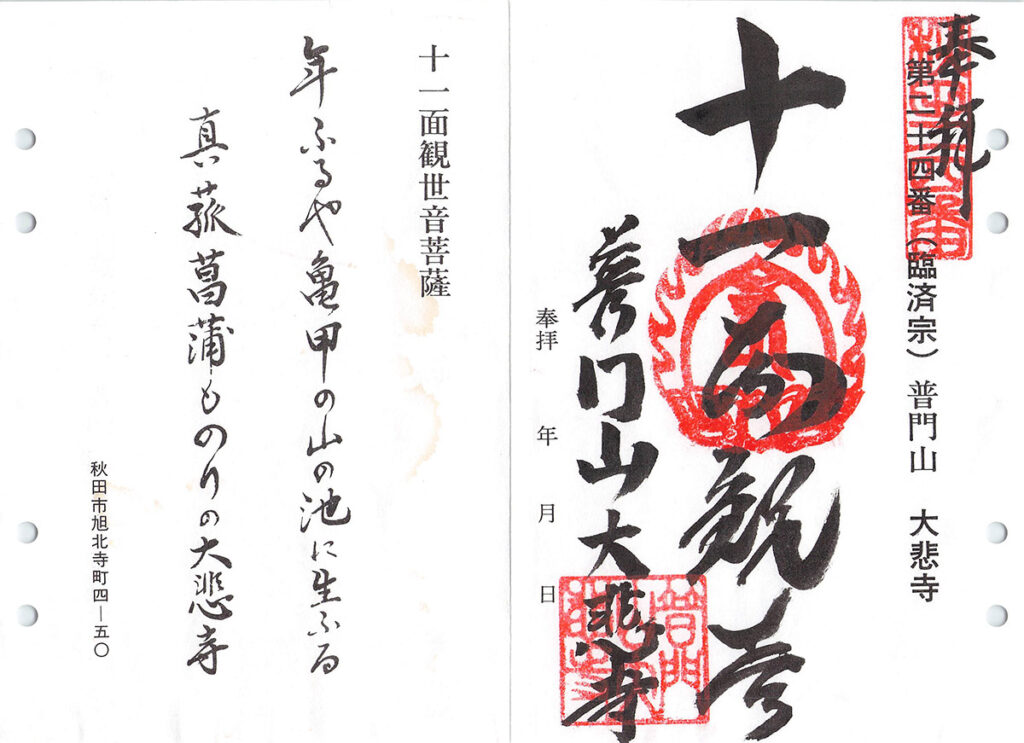 奉拝
第二十四番（臨済宗）普門山　大悲寺
十一面観音
普門山大悲寺
奉拝　年　月　日
普門
十一面観世音菩薩
年ふるや亀甲の山の池に生ふる
真菰菖蒲ものりの大悲寺
秋田市旭北寺町四―五〇